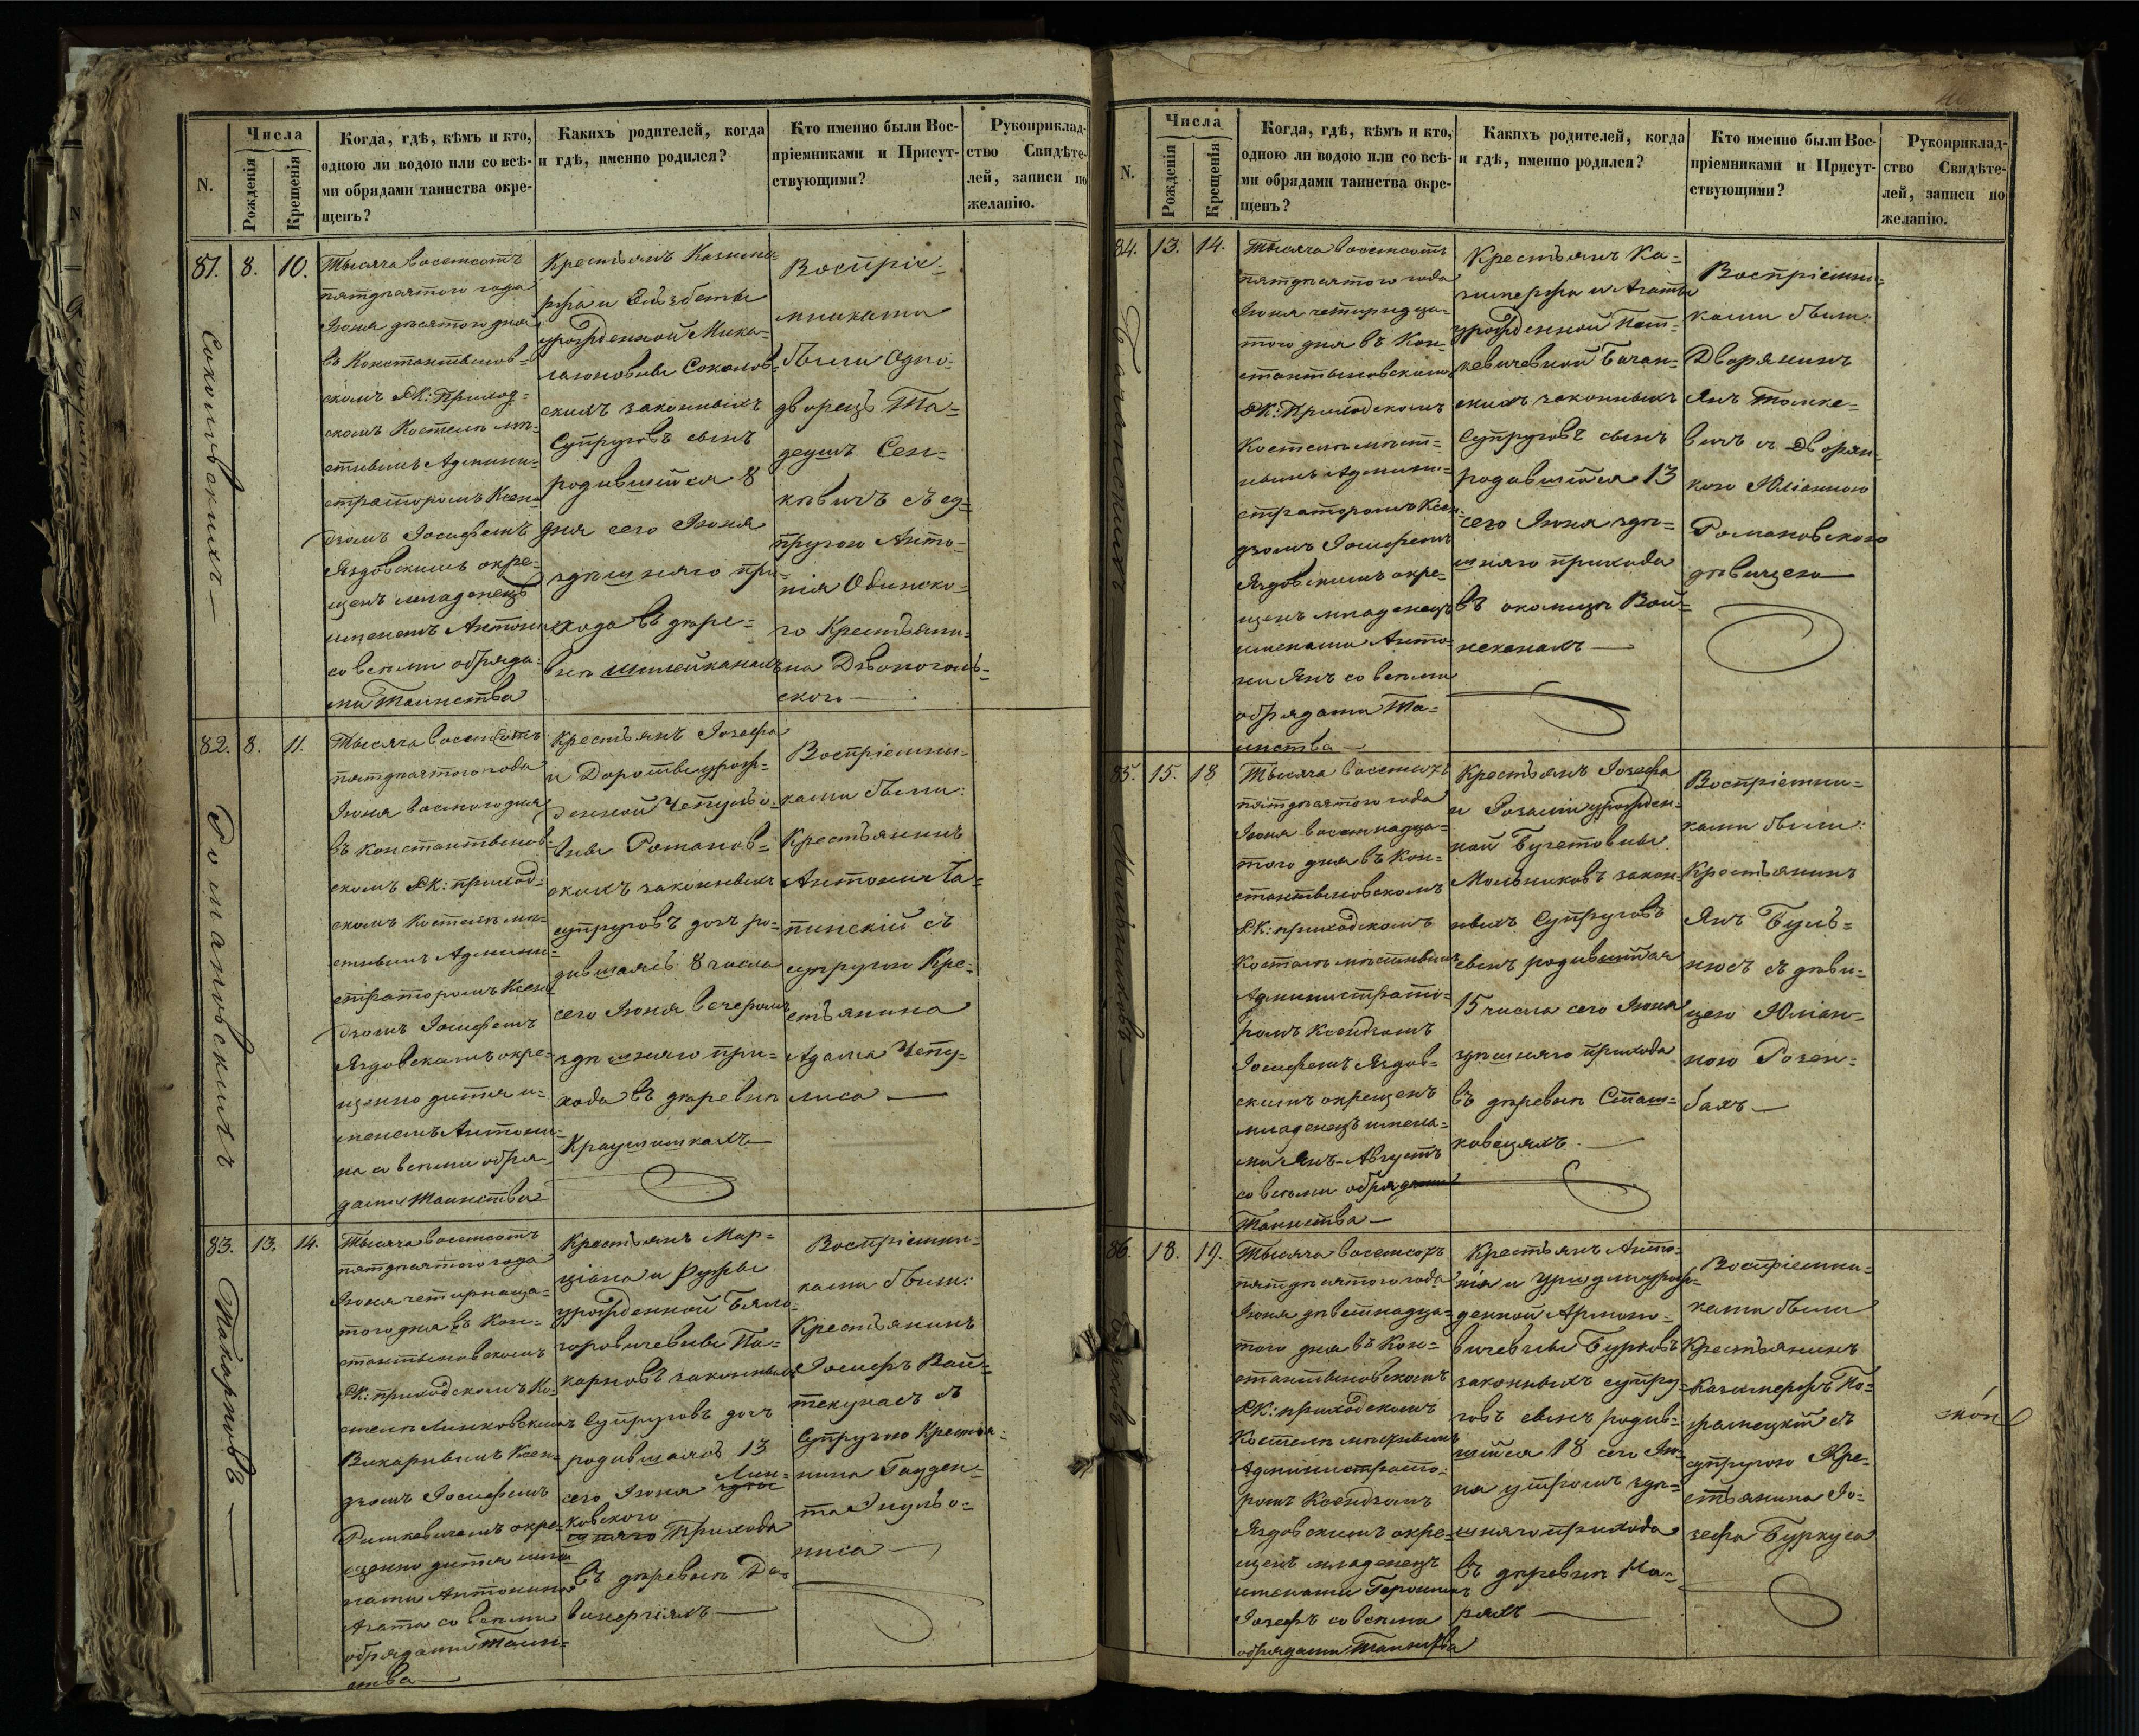 N.
Числа
Рожденія
Крещенія
Когда, гдѣ, кѣмъ и кто,
одною ли водою или со всѣ-
ми обрядами таинства окре-
щенъ?
Какихъ родителей, когда
и гдѣ, именно родился?
Кто именно были Вос-
пріемниками и Присут-
ствующими?
Рукоприклад-
ство Свидѣте-
лей, записи по
желанію.
81. 8. 10.
Соколовскихъ
Тысяча восемсотъ
пятдѣятого года
Іюня десятого дня
въ Константынов-
скомъ РК: Приход-
скомъ Костелѣ мѣ-
стнымъ Админи-
страторомъ Ксен-
дзомъ Іосифомъ
Яздовскимъ окре-
щенъ младенецъ
именемъ Антони
со всѣми обряда-
ми Таинства
Крестьянъ Казиме-
рфа и Элѣзбеты
урожденной Мика-
лаюновны Соколов-
скихъ законныхъ
Супруговъ сынъ
родившійся 8
дня сего Іюня
здѣшняго при-
хода въ дере-
внѣ
Воспріе-
мниками
были Одно-
дворецъ Та-
деушъ Сен-
кѣвичъ съ су-
пругою Анто-
нія Одиноко-
го Крестьяни-
на
82. 8. 11.
Романовскихъ
Тысяча восемсотъ
пятдѣятого года
Іюня восмого дня
въ Константынов-
скомъ РК: приход-
скомъ Костелѣ мѣ-
стнымъ Админи-
страторомъ Ксен-
дзомъ Іосифомъ
Яздовскимъ окре-
щенно дитя и-
менемъ Антони-
на со всѣми обря-
дами Таинства
Крестьянъ Іозефа
и Доротыи урож-
денной Чепуль о-
вны Романов-
скихъ законныхъ
супруговъ дочь ро-
дившаясь 8 числа
сего Іюня вечеромъ
здѣшняго при-
хода въ деревнѣ
Краушишкахъ
Воспріемни-
ками были:
Крестьянинъ
Антони Ча-
пинскій съ
супругою Кре-
стьянина
Адама Чепу-
лиса
83. 13. 14.
Макарповъ
Тысяча восемсотъ
пятдѣятого года
Іюня четырнаца-
того дня въ Кон-
стантыновскомъ
РК: приходскомъ Ко-
стелѣ Линковскимъ
Викарнымъ Ксен-
дзомъ Іосифомъ
Римкевичемъ окре-
щенно дитя име-
нами Антонина
Агата со всѣми
обрядами Таин-
ства
Крестьянъ Мар-
ціана и Руфы
урожденной Бяло-
горовичевны Ма-
карповъ законныхъ
Супруговъ дочь
родившаясь 13
сего Іюня Лин-
ковского
Прихода
въ деревнѣ Да-
Воспріемни-
ками были:
Крестьянинъ
Іосифъ Вай-
текунасъ съ
Супругою Крестья-
нина Гауден-
та
ниса
N.
Числа
Рожденія
Крещенія
Когда, гдѣ, кѣмъ и кто,
одною ли водою или со всѣ-
ми обрядами таинства окре-
щенъ?
Какихъ родителей, когда
и гдѣ, именно родился?
Кто именно были Вос-
пріемниками и Присут-
ствующими?
Рукоприклад-
ство Свидѣте-
лей, записи по
желанію.
84. 13. 14.
Тысяча восемсотъ
пятдѣятого года
Іюня четырндца-
того дня въ Кон-
стантыновскомъ
РК: Приходскомъ
Костелѣ мѣст-
нымъ Админи-
страторомъ Ксен-
дзомъ Іосифомъ
Яздовскимъ окре-
щенъ младенецъ
именами Анто-
ни Янъ со всѣми
обрядами Та-
инства
Крестьянъ Ка-
зимерфа и Агаты
урожденной Пет-
кевичевной Бачан-
скихъ законныхъ
Супруговъ сынъ
родившійся 13
сего Іюня здѣ-
шняго прихода
въ околицѣ Вой-
неканахъ
Воспріемни-
ками были:
Дворянинъ
Янъ Томке-
вичъ съ Дворян-
кою Юліанною
Романовскою
дѣвицею
85. 15. 18
Мольниковъ
Тысяча восемсотъ
пятдѣятого года
Іюня восемнадца-
того дня въ Кон-
стантыновскомъ
РК: приходскомъ
Костелѣ мѣстнымъ
Администрато-
ромъ Ксендзомъ
Іосифомъ Яздов-
скимъ окрещенъ
младенецъ имена-
ми Янъ-Августъ
со всѣми обрядами
Таинства
Крестьянъ Іозефа
и Розаліи урожден-
ной Бучетовны
Мольниковъ закон-
ныхъ Супруговъ
сынъ родившійся
15 числа сего Іюня
здѣшняго прихода
въ деревнѣ Сташ-
ковецяхъ
Воспріемни-
ками были:
Крестьянинъ
Янъ Буль-
нюсъ съ дѣви-
цею Юліан-
ною Розен-
бахъ
86. 18. 19.
Тысяча восемсотъ
пятдѣятого года
Іюня девятнадца-
того дня въ Кон-
стантыновскомъ
РК: приходскомъ
Костелѣ мѣстнымъ
Администрато-
ромъ Ксендзомъ
Яздовскимъ окре-
щенъ младенецъ
именами Геронимъ
Іозефъ со всѣми
обрядами Таинства
Крестьянъ Анто-
нія и Уршули урож-
денной Армоно-
вичевны Бурковъ
законныхъ супру-
говъ сынъ родив-
шійся 18 сего Ію-
ня утромъ здѣ-
шняго прихода
въ деревнѣ Ма-
ряхъ
Воспріемни-
ками были
Крестьянинъ
Казимерфъ По-
съ
супругою Кре-
стьянина Іо-
зефа Буркуса